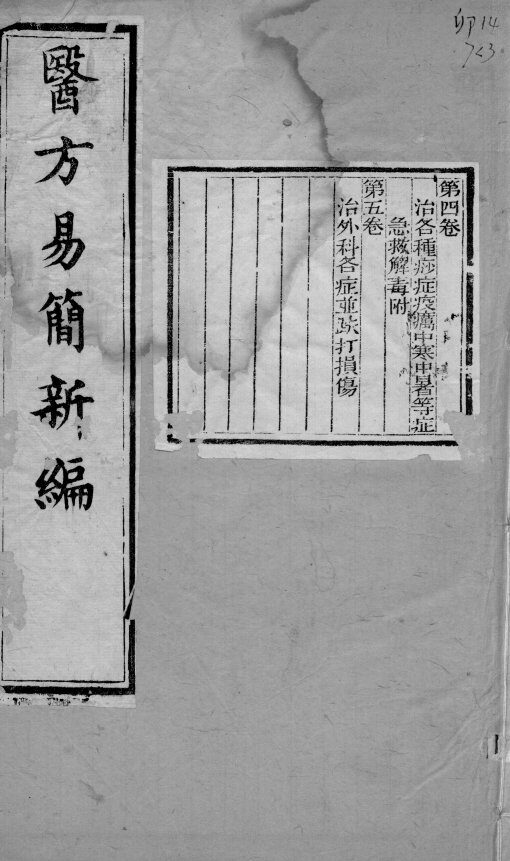 醫方易簡新編
第四卷
治各種痧症疫癘中寒中暑等症
急救解毒附
第五卷
治外科各症並跌打損傷